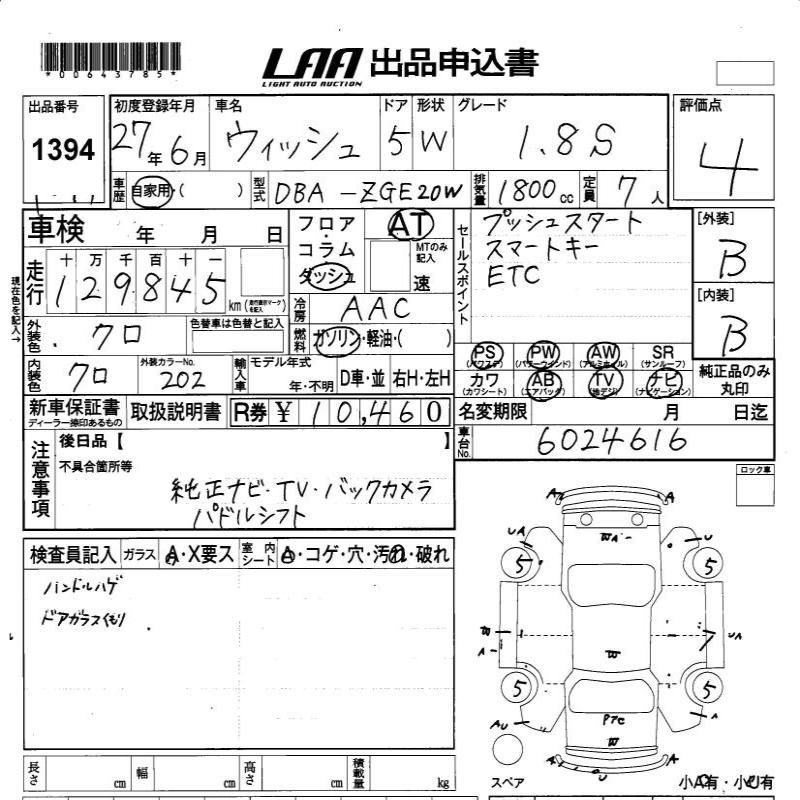 *00643785*
LAA 出品申込書
LIGHT AUTO AUCTION
出品番号 1394
初度登録年月 27年6月
車名 ウィッシュ
ドア 5 形状 W
グレード 1.8S
評価点 4
車歴 自家用・( )
型式 DBA-ZGE20W
排気量 1800cc
定員 7人
車検 年 月 日
フロア・コラム ダッシュ AT
MTのみ記入 速
走行 十万千百十一 129845km
セールスポイント
プッシュスタート
スマートキー
ETC
[外装] B
[内装] B
現在色を記入→
外装色 クロ 色替車は色替と記入
冷房 AAC
燃料 ガソリン・軽油・( )
PS (パワステ) PW (パワーウインド) AW (アルミホイル) SR (サンルーフ)
カワ (カワシート) AB (エアバッグ) TV (地デジ) ナビ (ナビゲーション)
純正品のみ丸印
内装色 クロ
外装カラーNo. 202
輸入車 モデル年式 年・不明 D車・並 右H・左H
新車保証書 ディーラー捺印あるもの
取扱説明書
R券 ¥10,460
名変期限 月 日迄
車台No. 6024616
注意事項
後日品【 】
不具合箇所等
純正ナビ・TV・バックカメラ
パドルシフト
ロック車
検査員記入 ガラス A・X要ス 室内シート A・コゲ・穴・汚れ・破れ
ハンドルハゲ
ドアガラスくもり
A A
UA WA- U
5 5
W UA
A- W
5 5
AU PTC A
W
A U A
スペア
小A有・小U有
長さ cm 幅 cm 高さ cm 積載量 kg